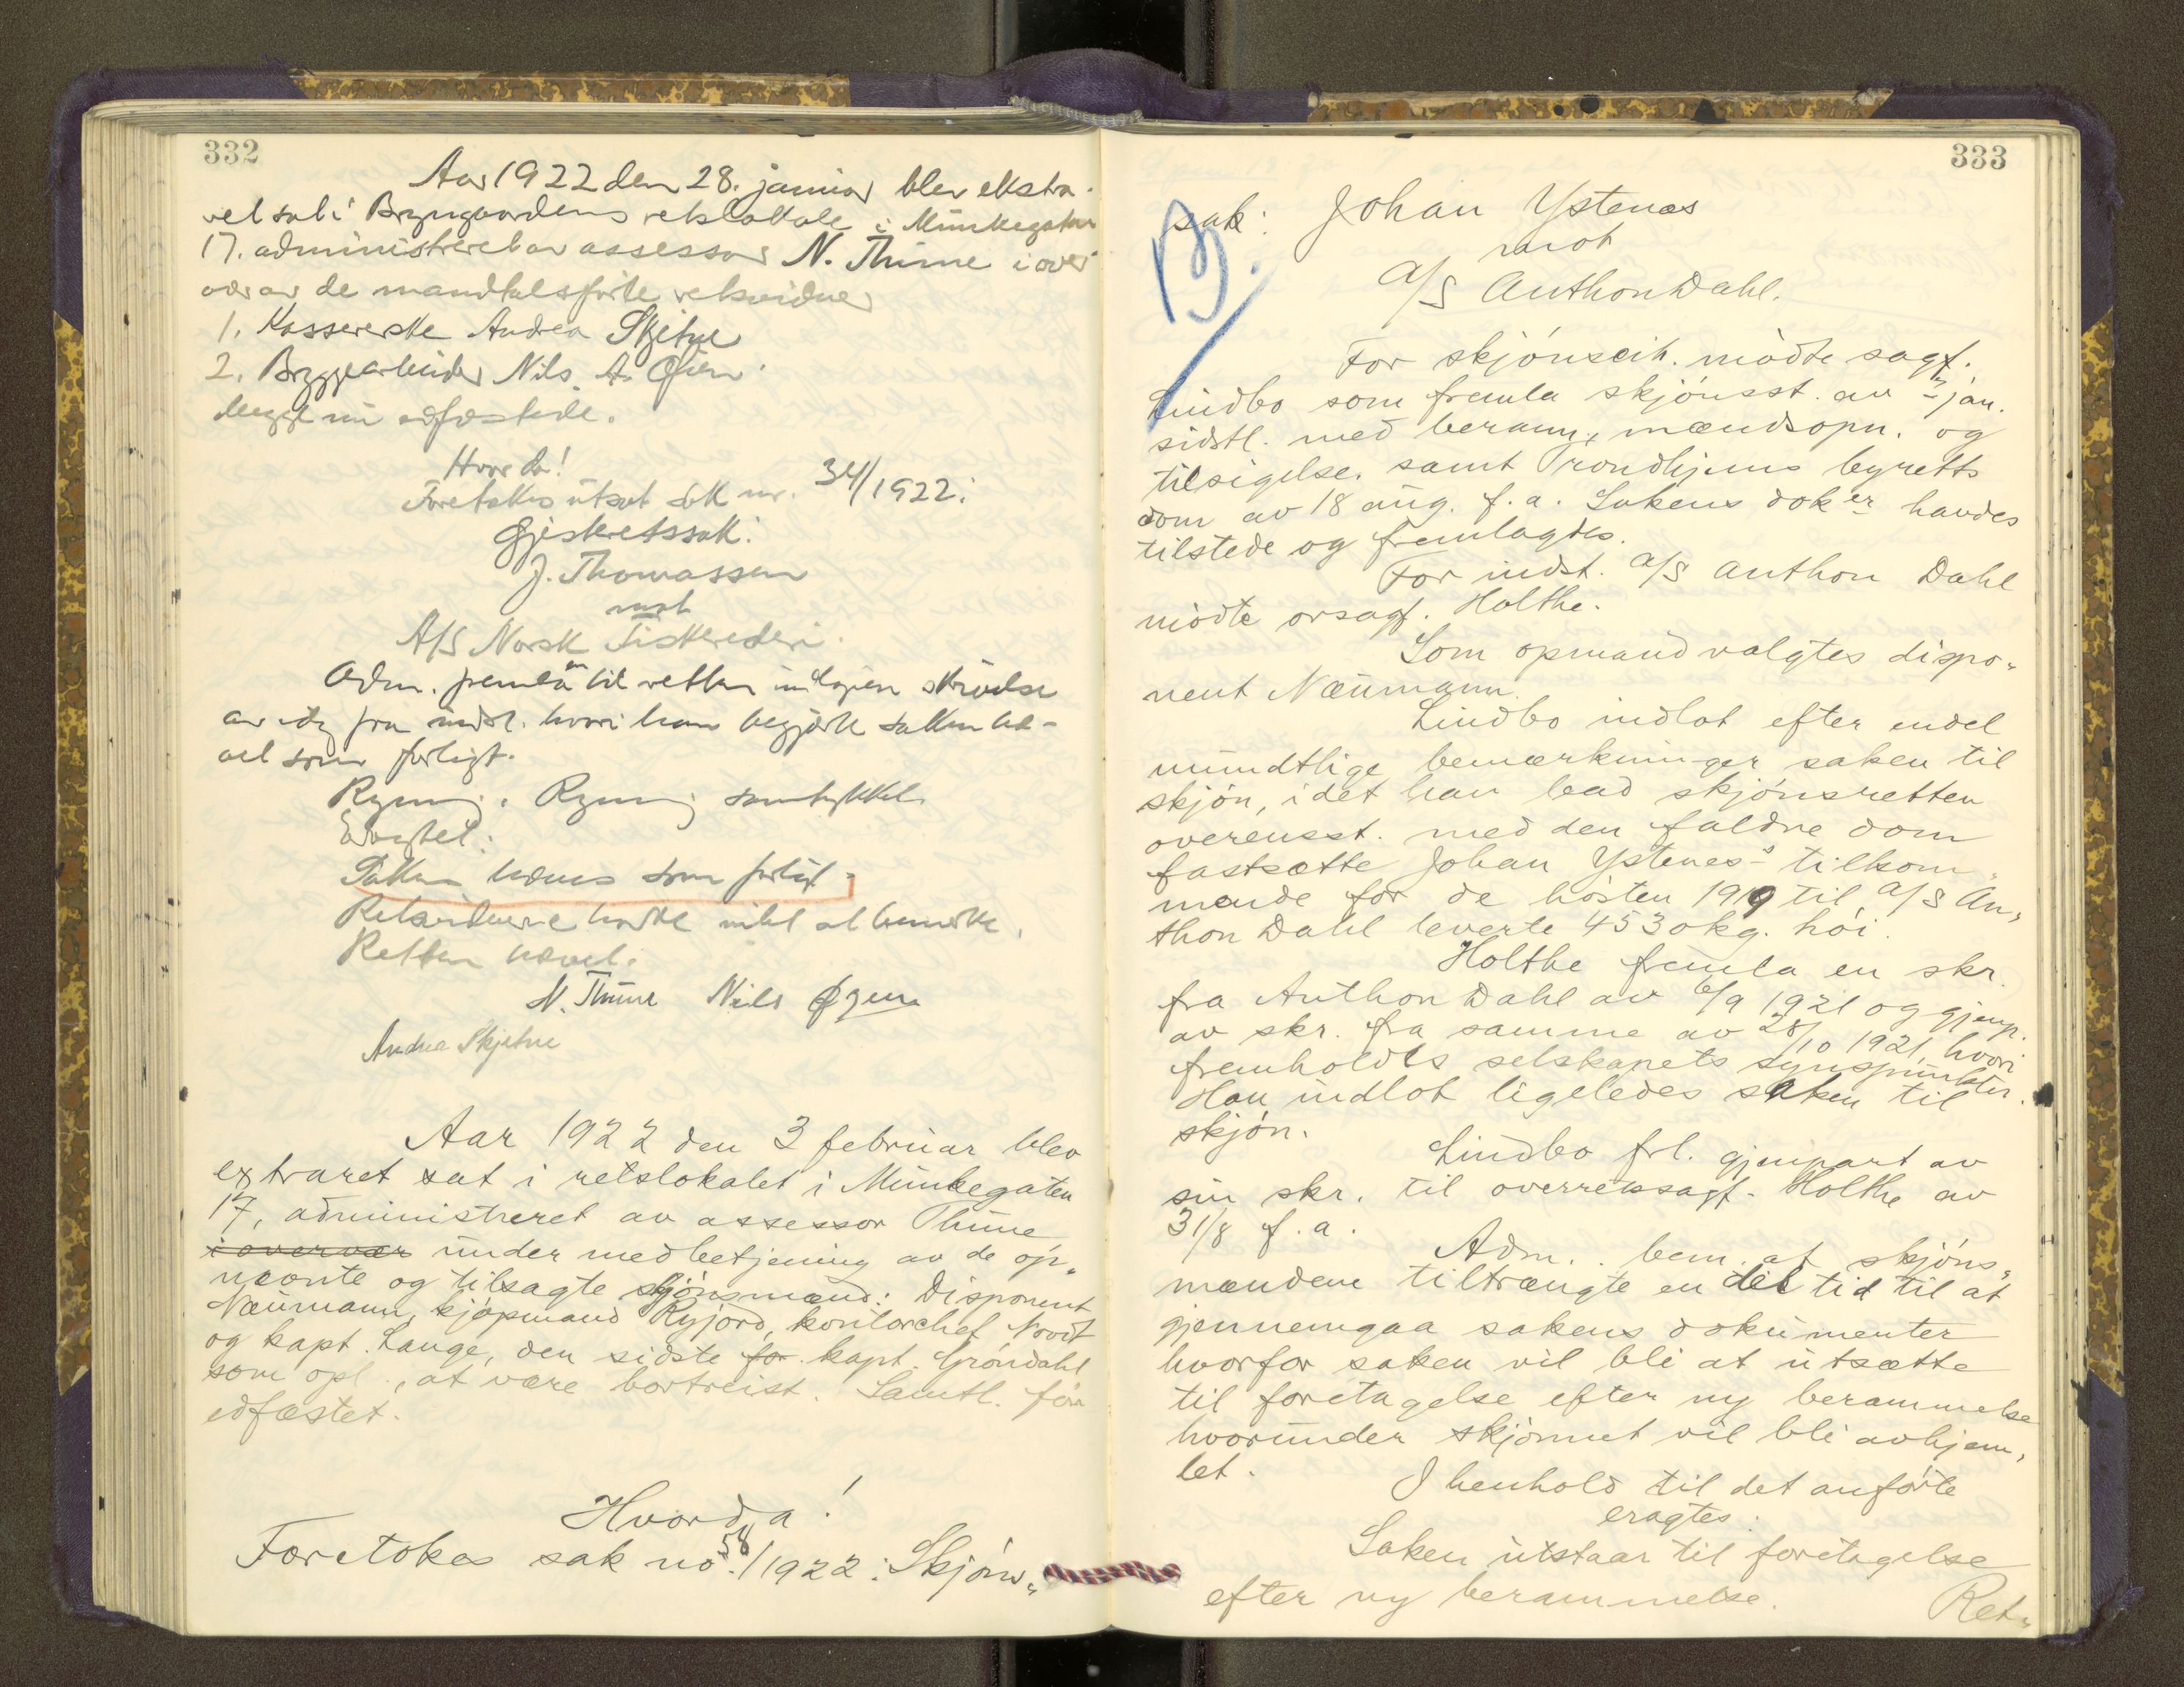 332
Aar 1922 den 28. januar blev ekstra-
ret sat i Brungaardens retslokale i Munkegaten
17. administreret av assessor N. Thime i over-
vær av de mandtalsførte retsvidner
1. Kassererske Andrea Skjetne
2. Bryggearbeider Nils A. Øien.
begge nu edfæstede.
Hvorda!
Foretokes utsat sak nr. 34/1922:
Gjesteretssak:
J. Thomassen
mot
A/S Norsk Fiskerederi.
Adm. fremla til retten en skrivelse
av fra indst. hvori han begjærte sakken hæ-
vet som forligt.
Ryning. Ryning samtykket.
Eragtet:
Sakken hæves som forlikt.
Retsvidnerne hadde intet at bemerke.
Retten hævet.
N. Thime Nils Øyen
Andrea Skjetne
Aar 1922 den 3 februar blev
extraret sat i retslokalet i Munkegaten
17, administreret av assessor Thime
i overvær under medbetjening av de op-
nævnte og tilsagte skjønsmænd: Disponent
Næumann, kjøpmand Ryjord, kontorchef Hovdt
og kapt. Lange, den sidste for kapt. Grøndahl
som opl., at være bortreist. Samtl. før
edfæstet.
Hvorda!
Foretokes sak no. 58/1922: Skjøns-
333
sak: Johan Ystenæs
mot
A/S Anthon Dahl.
For skjønscit. mødte sagf.
Lindbo som fremla skjønsst. av jan.
sidstl. med beramm, mændsopn. og
tilsigelse. samt Trondhjems byretts
dom av 18 aug. f. a. Sakens doker havdes
tilstede og fremlagdes.
For indst. A/S Anthon Dahl
mødte orsagf. Holthe.
Som opmand valgtes dispo-
nent Næumann.
Lindbo indlot efter endel
mundtlige bemærkninger saken til
skjøn, idet han bad skjønsretten
overensst. med den faldne dom
fastsætte Johan Ystenes's tilkom-
mende for de høsten 1919 til A/S An-
thon Dahl leverte 4530 kg. høi.
Holthe fremla en skr.
fra Anthon Dahl av 6/9 1921 og gjenp.
av skr. fra samme av 28/10 1921, hvori
fremholdes selskapets synspunkter.
Han indlot ligeledes saken til
skjøn.
Lindbo frl. gjenpart av
sin skr. til overretssagf. Holthe av
31/8 f. a.
Adm. bem. at skjøns-
mændene tiltrængte en del tid til at
gjennemgaa sakens dokumenter
hvorfor saken vil bli at utsætte
til foretagelse efter ny berammelse
hvorunder skjønnet vil bli avhjem-
let.
I henhold til det anførte
eragtes:
Saken utstaar til foretagelse
efter ny berammelse.
Ret-